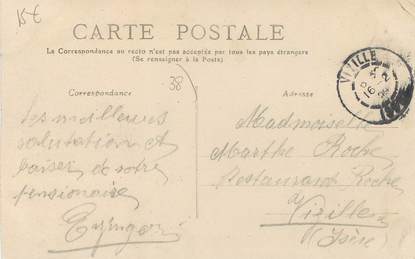 15€
CARTE POSTALE
La Correspondance au recto n'est pas acceptée par tous les pays étrangers
(Se renseigner à la Poste)
38
Correspondance
Adresse
VIZILLE
Les meilleures
salutation et
baiser de votre
pensionaire
Mademoiselle
Marthe Roche
Restaurant Roche
à Vizille
(Isère)